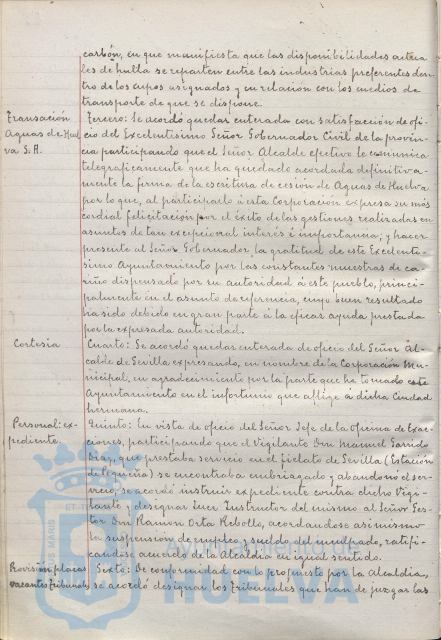 carbón, en que manifiesta que las disponibilidades actua
les de hulla se reparten entre las industrias preferentes den
tro de los cupos asignados y en relación con los medios de
transporte de que se dispone.
Transación
Aguas de Huel
va S.A.
Tercero: Se acordó quedar enterada con satisfacción de ofi
cio del Excelentísimo Señor Gobernador Civil de la provin
cia participando que el Señor Alcalde efectivo le comunica
telegraficamente que ha quedado acordada definitiva-
mente la firma de la escritura de cesión de Aguas de Huelva
por lo que, al participarlo á esta Corporación expresa su más
cordial felicitación por el éxito de las gestiones realizadas en
asuntos de tan excepcional interés é importancia; y hacer
presente al Señor Gobernador la gratitud de este Excelen-
simo Ayuntamiento por las constantes muestras de ca-
riño dispensado por su autoridad á este pueblo, princi-
palmente en el asunto de referencia, cuyo buen resultado
ha sido debido en gran parte á la eficas ayuda prestada
por la expresada autoridad.
Cortesia
Cuarto: Se acordó quedar enterada de oficio del Señor Al-
calde de Sevilla expresando, en nombre de la Corporación Mu-
nicipal, en agradecimiento por la parte que ha tomado este
Ayuntamiento en el infortunio que aflige á dicha Ciudad
hermana.
Personal: ex-
pediente.
Quinto: En vista de oficio del Señor Jefe de la oficina de Exac
ciones, participando que el Vigilante Don Manuel Garrido
Diaz, que prestaba servicio en el fielato de Sevilla (Estación
de Pequeña) se encontraba embriagado y abandonó el ser-
vicio, se acordó instruir expediente contra dicho Vigi-
lante y designar Juez Instructor del mismo al Señor Ges-
tor Don Ramon Orta Rebollo, acordandose asi mismo
la suspensión de empleo y sueldo del inculpado, ratifi-
candose acuerdo de la Alcaldia en igual sentido.
Provisión plazas
vacantes Tribunales
Sexto: De conformidad con lo propuesto por la Alcaldia,
se acordó designar los Tribunales que han de juzgar las
HUELVA